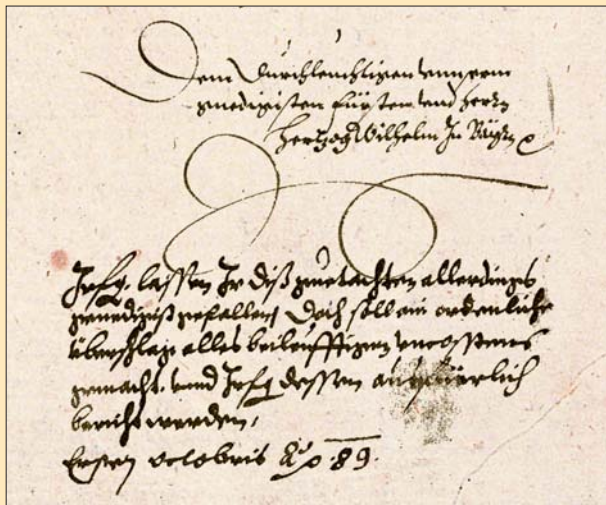 Dem Durchleuchtigen unnserm
genedigisten Fürsten und herrn
Hertzog Wilhelm In Bayrn
lassen Ir diß guetachten allerdings
genedigist gefallen, doch soll ein ordenliche
überschlag alles beileuffigen uncosstens
gemacht. unnd dessen
bericht werden,
Ersten octobris Ao. 89.